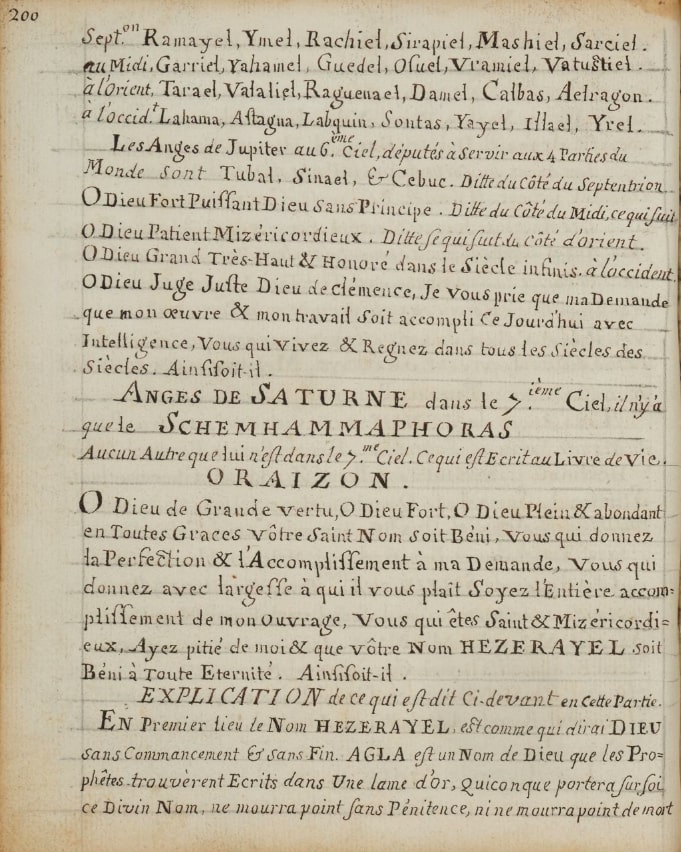 200
Sept.on Ramayel, Ymel, Rachiel, Sirapiel, Mashiel, Sarciel.
au Midi, Garriel, Yahamel, Guedel, Osuel, Vramiel, Vatustiel.
à l'orient, Tarael, Valaliel, Raguenael, Damel, Calbas, Aelragon.
à l'occid.t Lahama, Astagna, Labquin, Sontas, Yayel, Illael, Yrel.
Les Anges de Jupiter au 6.ème Ciel, députés à Servir aux 4 Parties du
Monde sont Tubal, Sinael, & Cebuc. Ditte du Côté du Septentrion
O Dieu Fort Puissant Dieu sans Principe. Ditte du Côté du Midi, ce qui suit
O Dieu Patient Mizéricordieux. Ditte se qui suit du côté d'orient.
O Dieu Grand Très-Haut & Honoré dans le Siècle infinis. à l'accident.
O Dieu Juge Juste Dieu de clémence, Je vous prie que ma Demande
que mon œuvre & mon travail soit accompli Ce Jourd'hui avec
Intelligence, Vous qui vivez & Regnez dans tous les Siècles des
Siècles. Ainsisoit-il.
ANGES DE SATURNE dans le 7.ième Ciel, il n'y a
que le SCHEMHAMMAPHORAS
Aucun Autre que lui n'est dans le 7.me Ciel. Ce qui est Ecrit au Livre de Vie.
ORAIZON.
O Dieu de Grande vertu, O Dieu Fort, O Dieu Plein & abondant
en Toutes Graces vôtre Saint Nom soit Béni, Vous qui donnez
la Perfection & l'Accomplissement à ma Demande, Vous qui
donnez avec largesse à qui il vous plaît Soyez l'Entière accom=
plissement de mon Ouvrage, Vous qui êtes Saint & Mizéricordi=
eux, Ayez pitié de moi & que vôtre Nom HEZERAYEL soit
Béni à Toute Eternité. Ainsisoit-il.
EXPLICATION de ce qui est dit Ci-devant en Cette Partie.
EN Premier lieu le Nom HEZERAYEL, est comme qui dirai DIEU
sans Commancement & sans Fin. AGLA est un Nom de Dieu que les Pro=
phêtes trouvèrent Ecrits dans Une lame d'or, Quiconque portera sur soi
ce Divin Nom, ne mourra point sans Pénitence, ni ne mourra point de mort